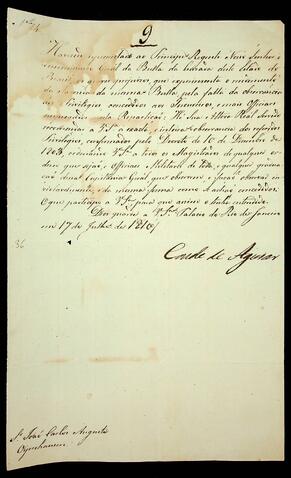 9
Havendo representado ao Principe Regente Nosso Senhor o
Commissario Geral da Bulla da Cruzada deste Estado do
Brazil, os graves prejuizos, que experimenta o rendimento
da esmola da mesma Bulla, pela falta da observancia
dos Privilegios concedidos aos Thesoureiros, e mais Officiaes
empregados nesta Repartição: He Sua Alteza Real Servido
recomendar a V. S.ª a exacta, e inteira observancia dos referidos
Privilegios, confirmados pelo Decreto de 10 de Dezembro de
ordenando V. S.ª a todos os Magistrados de qualquer or-
dem que sejão, e Officiaes Militares de toda e qualquer graduação
dessa Capitania Geral que observem, e fação observar in-
violavelmente, e da mesma forma como se achão concedidos.
O que participo a V. S.ª para que assim o tenha entendido.
Deos guarde a V. S.ª Palacio do Rio de Janeiro
em 17 de Julho de 1810/
Conde de Aguiar
36
S.r João Carlos Augusto
Oyenhausen